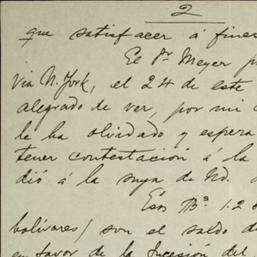 2
que satisfacer á fines
El Sr. Meyer p
via N. York, el 24 de este
alegrado de ver, por mi c
le ha olvidado y espera
tener contestación á la
dió á la suya de Nd.
Esos Bs 1.2
bolívares) son el saldo d
en favor de la Sucesión del